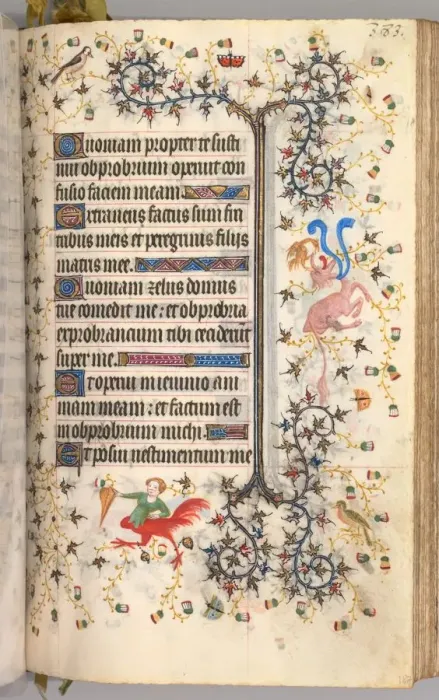 333.
Quoniam propter te susti
nui obprobrium operuit con
fusio faciem meam
Extraneus factus sum fra
tribus meis et peregrinus filijs
matris mee.
Quoniam zelus domus
tue comedit me: et obprobria
exprobrancium tibi ceciderunt
super me.
Et operui in ieiunio ani
mam meam: et factum est
in obprobrium michi.
Et posui vestimentum me